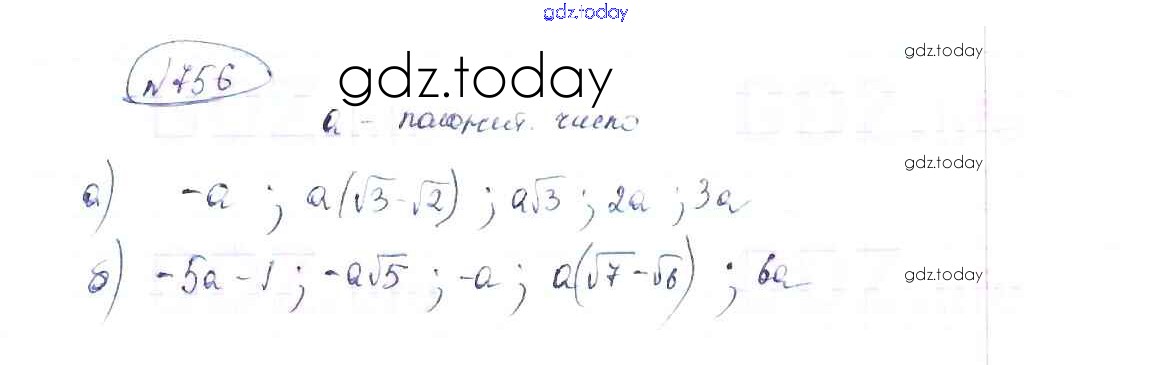 gdz.today
№756
gdz.today
gdz.today
a - положит. число
gdz.today
а) -a ; a(√3-√2) ; a√3 ; 2a ; 3a
б) -5a-1 ; -a√5 ; -a ; a(√7-√6) ; 6a
gdz.today